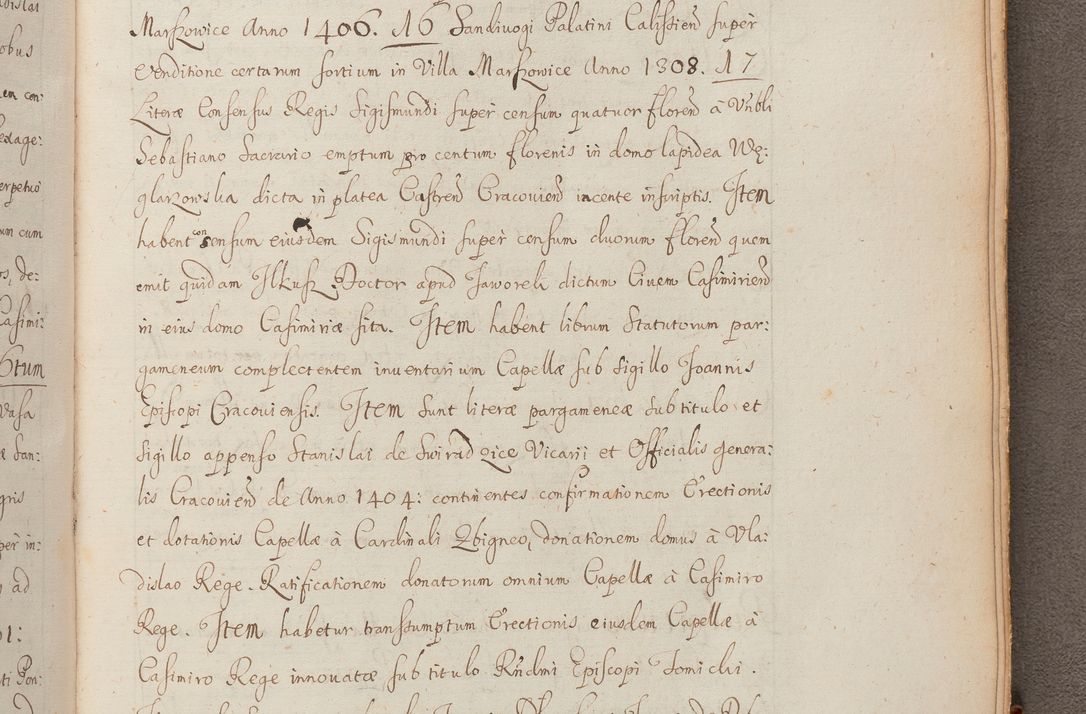 Marszowice Anno 1406. 16 Sandiuogi Palatini Calissień super
Venditione certarum sortium in Villa Marszowice Anno 1308. 17
Literæ Consensus Regis Sigismundi super censum quatuor floreń à Vńbli
Sebastiano Sacrario emptum pro centum florenis in domo lapidea Wę:
glarzowska dicta in platea Castreń Cracouień iacente inscriptis. Item
habent consensum eiusdem Sigismundi super censum duorum floreń quem
emit quidam Ilkusz Doctor apud Jaworek dictum Ciuem Casimirień
in eius domo Casimiriæ sita. Item habent librum Statutorum par:
gameneum complectentem inuentarium Capellæ sub sigillo Joannis
Episcopi Cracouiensis. Item sunt literæ pargameneæ sub titulo et
sigillo appenso Stanislai de Swiradzice Vicarii et Officialis genera:
lis Cracouień de Anno 1404: continentes confirmationem Erectionis
et dotationis Capellæ à Cardinali Zbigneo, donationem domus à Vla:
dislao Rege. Ratificationem donatorum omnium Capellæ à Casimiro
Rege. Item habetur transsumptum Erectionis eiusdem Capellæ à
Casimiro Rege innouatæ sub titulo Rńdmi Episcopi Tomicki.